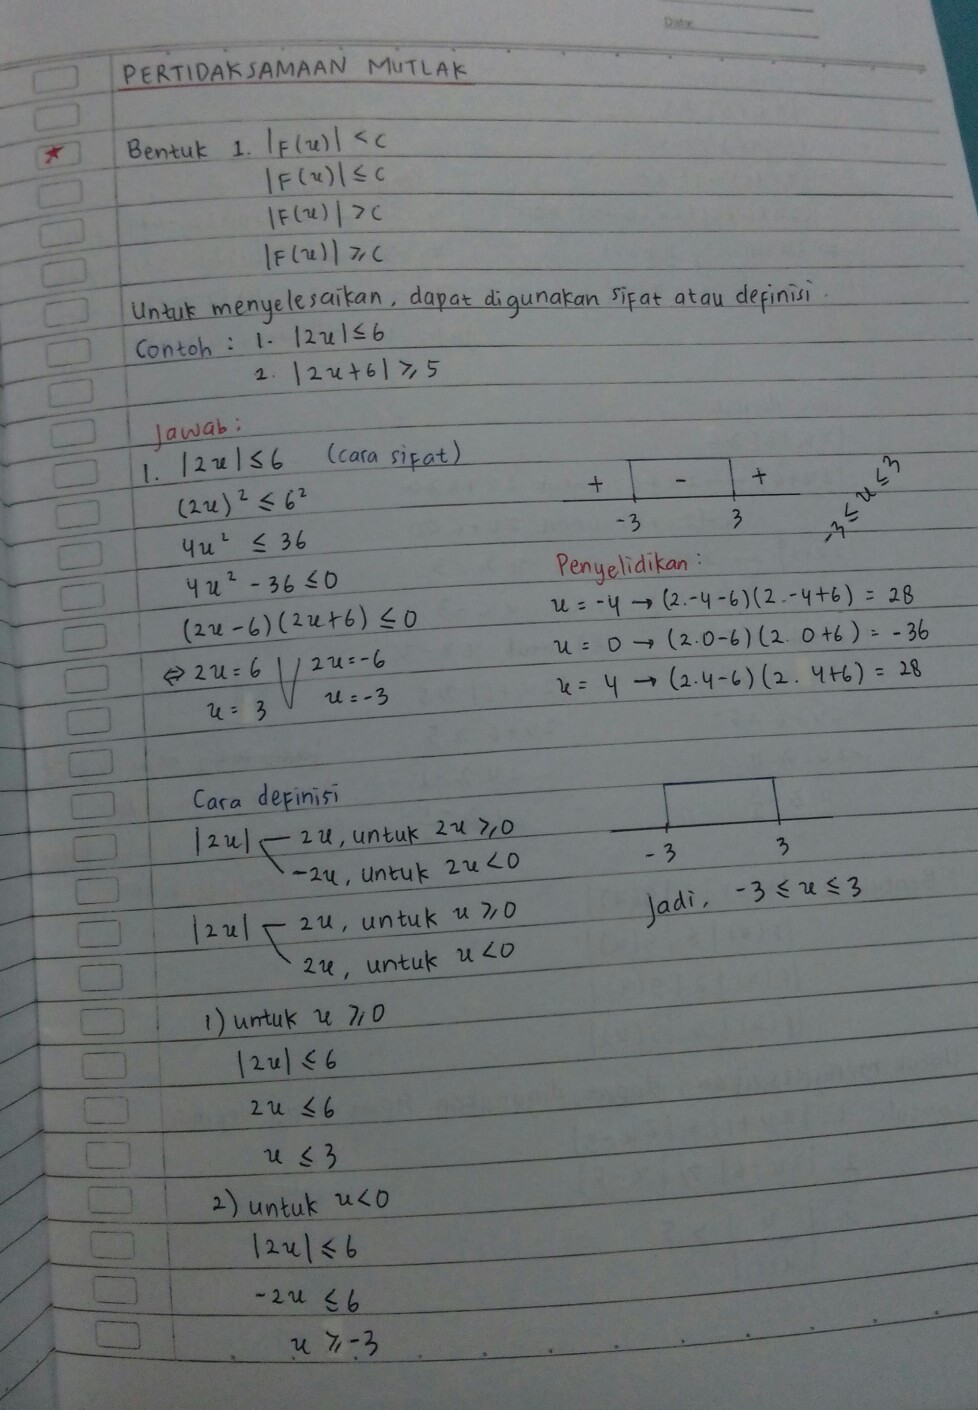 Date:
PERTIDAKSAMAAN MUTLAK
Bentuk 1. |F(x)| < c
|F(x)| ≤ c
|F(x)| > c
|F(x)| ≥ c
Untuk menyelesaikan, dapat digunakan sifat atau definisi.
Contoh : 1. |2x| ≤ 6
2. |2x+6| ≥ 5
Jawab:
1. |2x| ≤ 6 (cara sifat)
(2x)² ≤ 6²
4x² ≤ 36
4x² - 36 ≤ 0
(2x-6)(2x+6) ≤ 0
⇔ 2x = 6 ∨ 2x = -6
x = 3 x = -3
+ - +
-3 3
-3 ≤ x ≤ 3
Penyelidikan:
x = -4 → (2.-4-6)(2.-4+6) = 28
x = 0 → (2.0-6)(2.0+6) = -36
x = 4 → (2.4-6)(2.4+6) = 28
Cara definisi
|2x| 2x, untuk 2x ≥ 0
-2x, untuk 2x < 0
|2x| 2x, untuk x ≥ 0
2x, untuk x < 0
1) untuk x ≥ 0
|2x| ≤ 6
2x ≤ 6
x ≤ 3
2) untuk x < 0
|2x| ≤ 6
-2x ≤ 6
x ≥ -3
-3 3
Jadi, -3 ≤ x ≤ 3